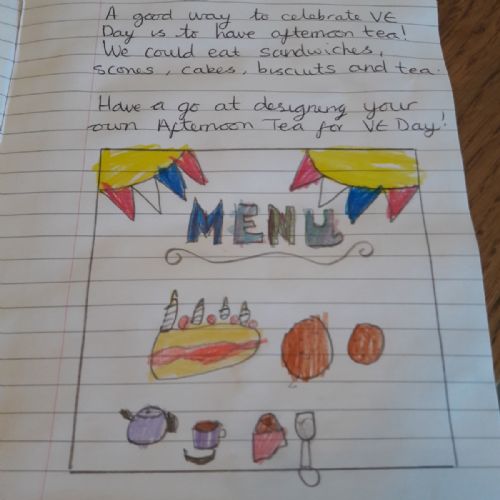 A good way to celebrate VE
Day is to have afternoon tea!
We could eat sandwiches,
scones, cakes, biscuits and tea.
Have a go at designing your
own Afternoon Tea for VE Day!
MENU